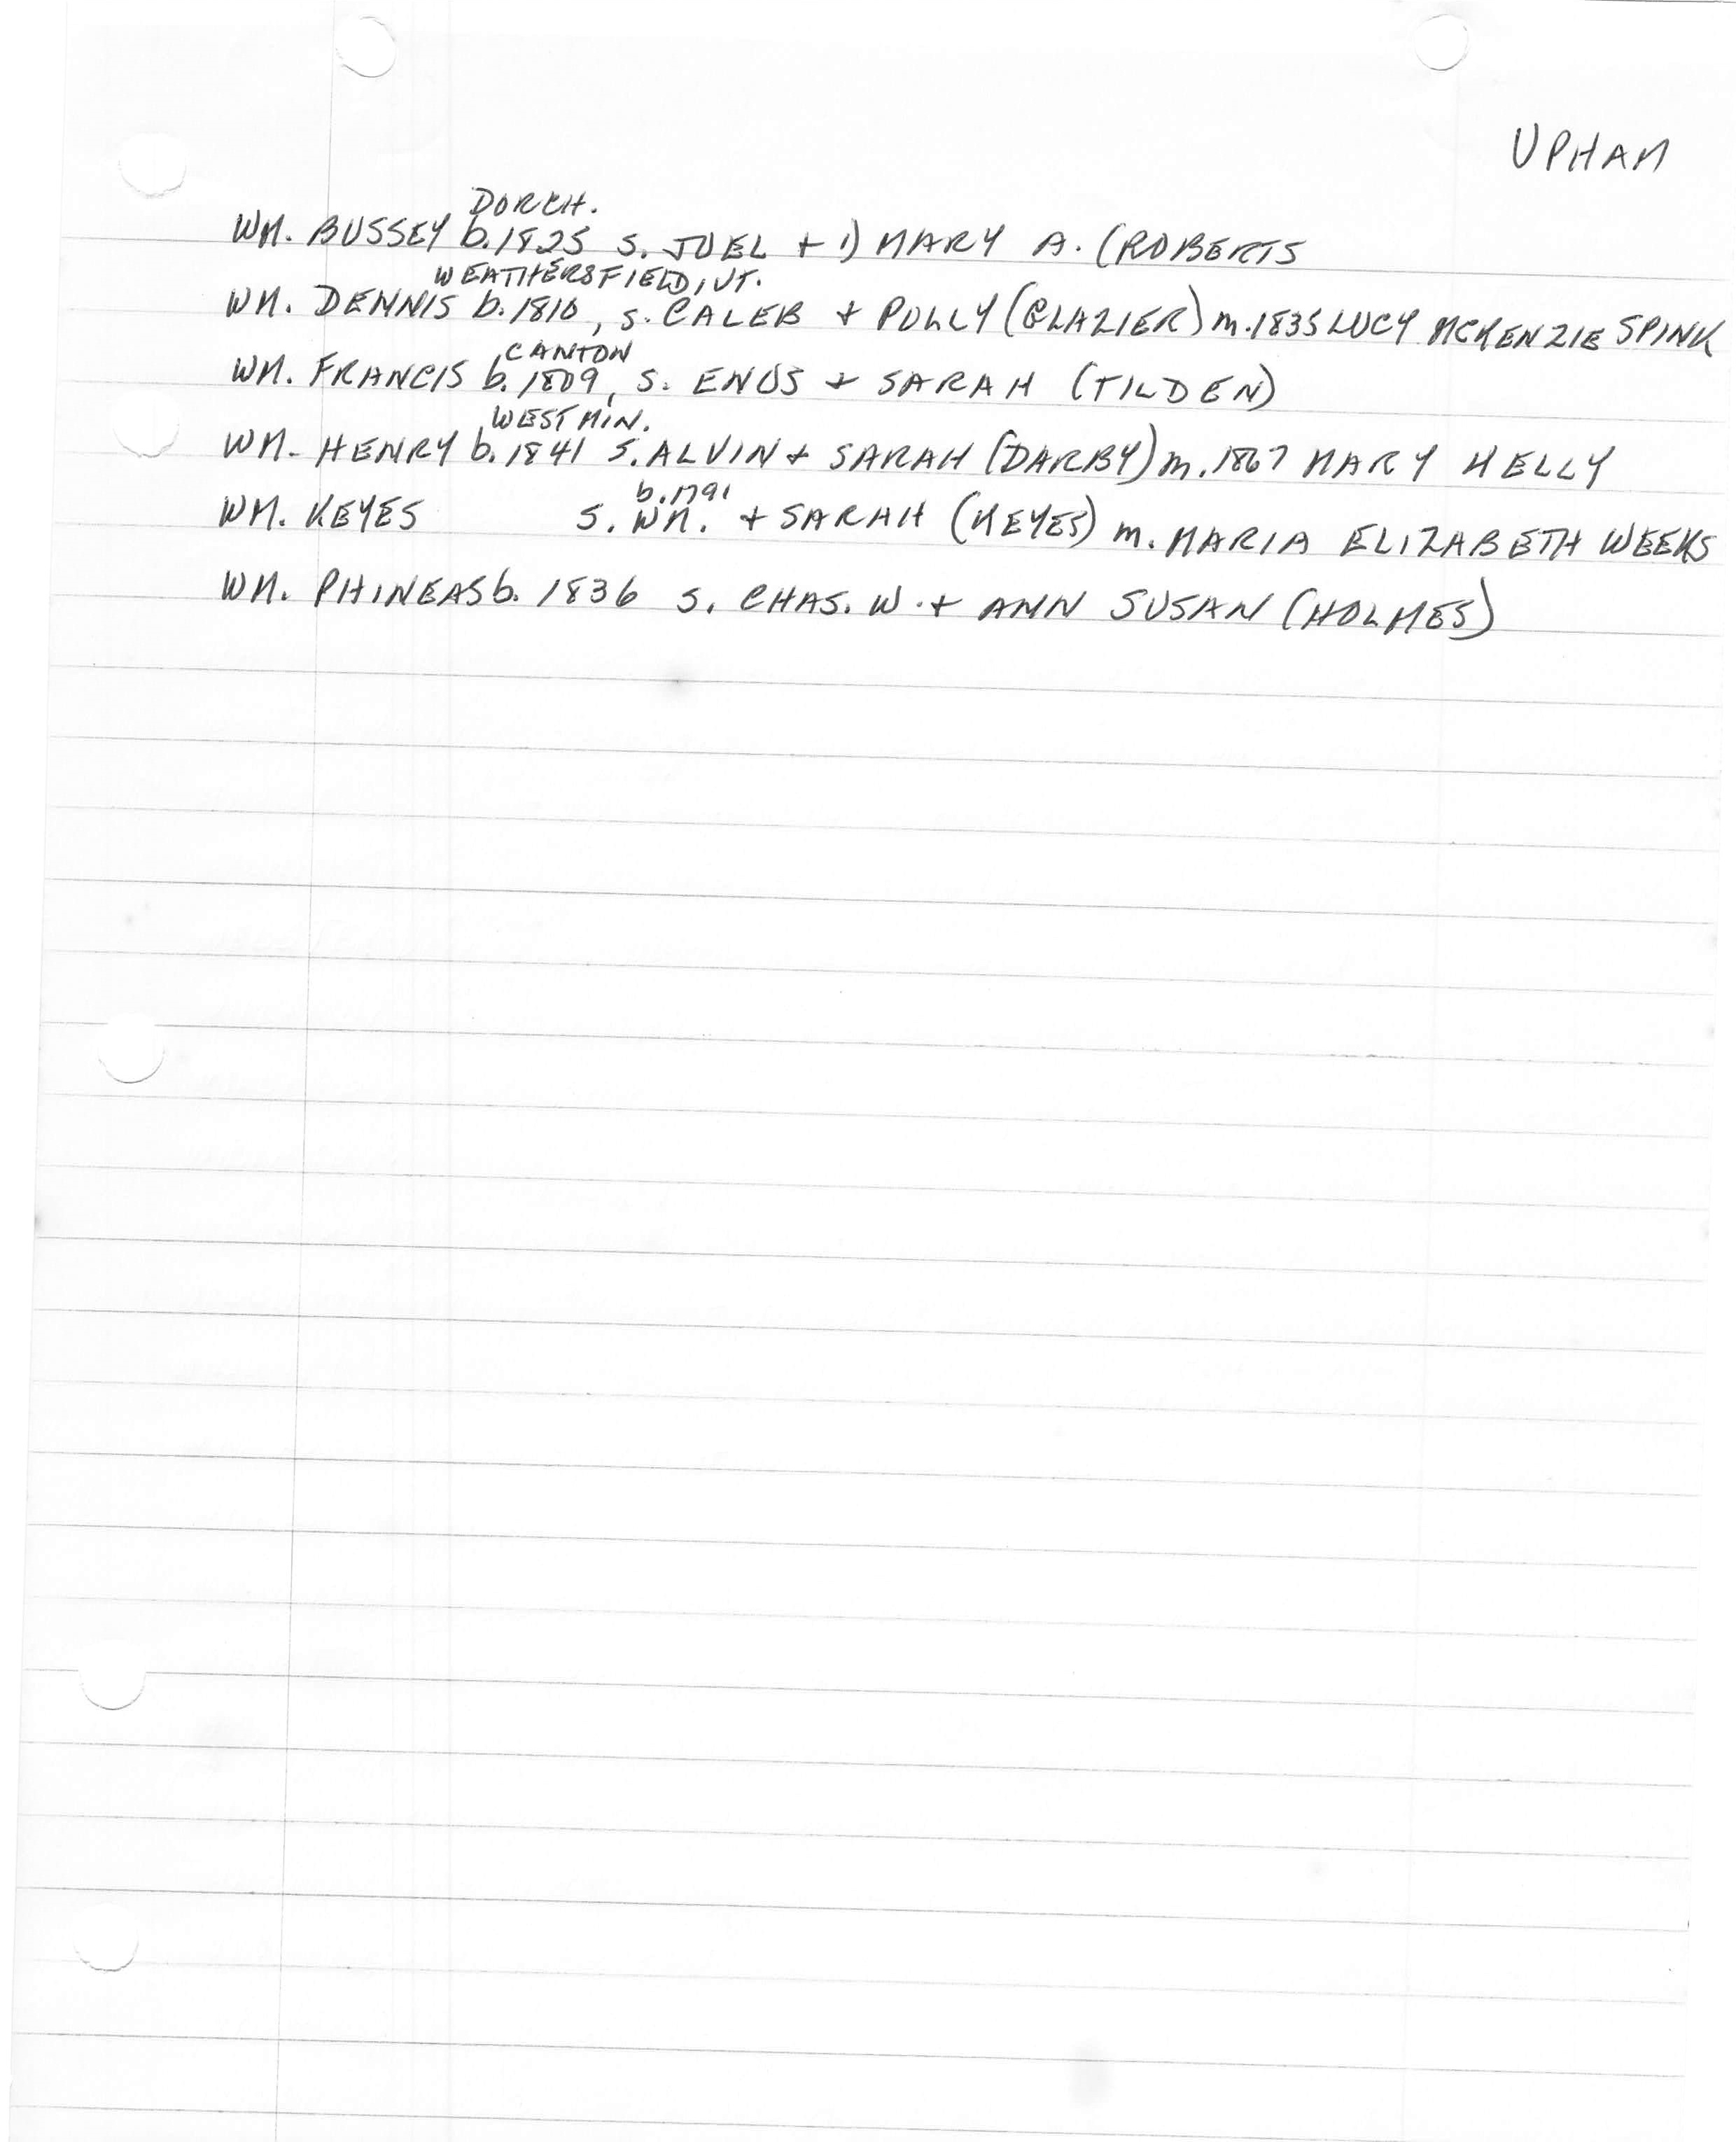 UPHAM
DORCH.
WM. BUSSEY b. 1825 S. JOEL + 1) MARY A. (ROBERTS
WEATHERSFIELD, VT.
WM. DENNIS b. 1810, S. CALEB + POLLY (GLAZIER) m. 1835 LUCY MCKENZIE SPINK
CANTON
WM. FRANCIS b. 1809, S. ENOS + SARAH (TILDEN)
WESTMIN.
WM. HENRY b. 1841 S. ALVIN + SARAH (DARBY) m. 1867 MARY KELLY
b. 1791
WM. KEYES S. WM. + SARAH (KEYES) m. MARIA ELIZABETH WEEKS
WM. PHINEAS b. 1836 S. CHAS. W. + ANN SUSAN (HOLMES)